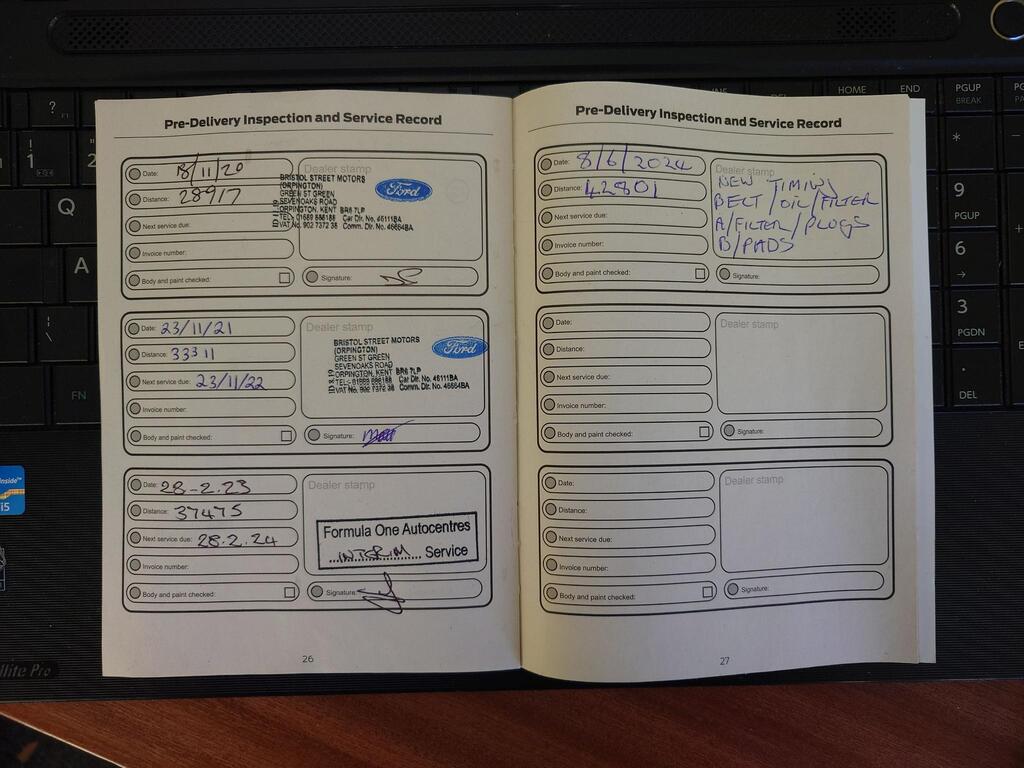 ? HOME END PGUP
BREAK
! 1 2
Q
A
FN
* 9 PGUP
6
3 PGDN
. DEL
inside™
i5
llite Pro
Pre-Delivery Inspection and Service Record
Date: 18/11/20
Distance: 28917
Next service due:
Invoice number:
Body and paint checked:
Dealer stamp
BRISTOL STREET MOTORS
(ORPINGTON)
GREEN ST GREEN
SEVENOAKS ROAD
ORPINGTON, KENT BR6 7LP
TEL: 01689 886188 Car Dlr. No. 46111BA
VAT No. 902 7372 38 Comm. Dlr. No. 46664BA
Ford
Signature:
Date: 23/11/21
Distance: 33311
Next service due: 23/11/22
Invoice number:
Body and paint checked:
Dealer stamp
BRISTOL STREET MOTORS
(ORPINGTON)
GREEN ST GREEN
SEVENOAKS ROAD
ORPINGTON, KENT BR6 7LP
TEL: 01689 886188 Car Dlr. No. 46111BA
VAT No. 902 7372 38 Comm. Dlr. No. 46664BA
Ford
Signature:
Date: 28-2.23
Distance: 37475
Next service due: 28.2.24
Invoice number:
Body and paint checked:
Dealer stamp
Formula One Autocentres
INTERIM Service
Signature:
26
Pre-Delivery Inspection and Service Record
Date: 8/6/2024
Distance: 42801
Next service due:
Invoice number:
Body and paint checked:
Dealer stamp
NEW TIMING
BELT/OIL/FILTER
A/FILTER/PLUGS
B/PADS
Signature:
Date:
Distance:
Next service due:
Invoice number:
Body and paint checked:
Dealer stamp
Signature:
Date:
Distance:
Next service due:
Invoice number:
Body and paint checked:
Dealer stamp
Signature:
27